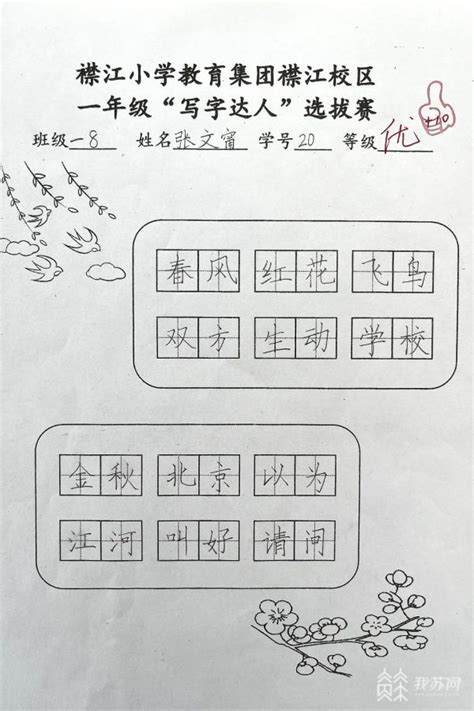 襟江小学教育集团襟江校区
一年级“写字达人”选拔赛
班级一8 姓名张文甯 学号20 等级优
+10
春风 红花 飞鸟
双方 生动 学校
金秋 北京 以为
江河 叫好 请闻
我苏网